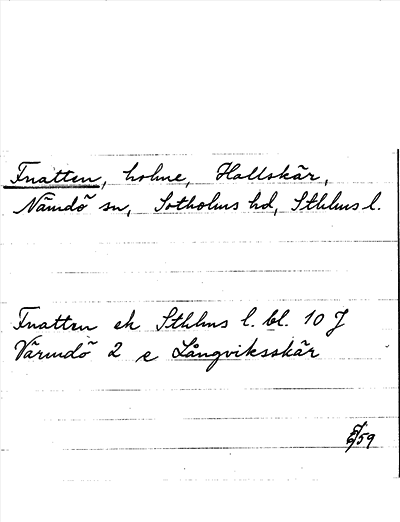 Fnatten, holme, Hallskär,
Nämdö sn, Sotholms hd, Sthlms l.
Fnatten ek Sthlms l. bl. 10 J
Värmdö 2 e Långviksskär
/59